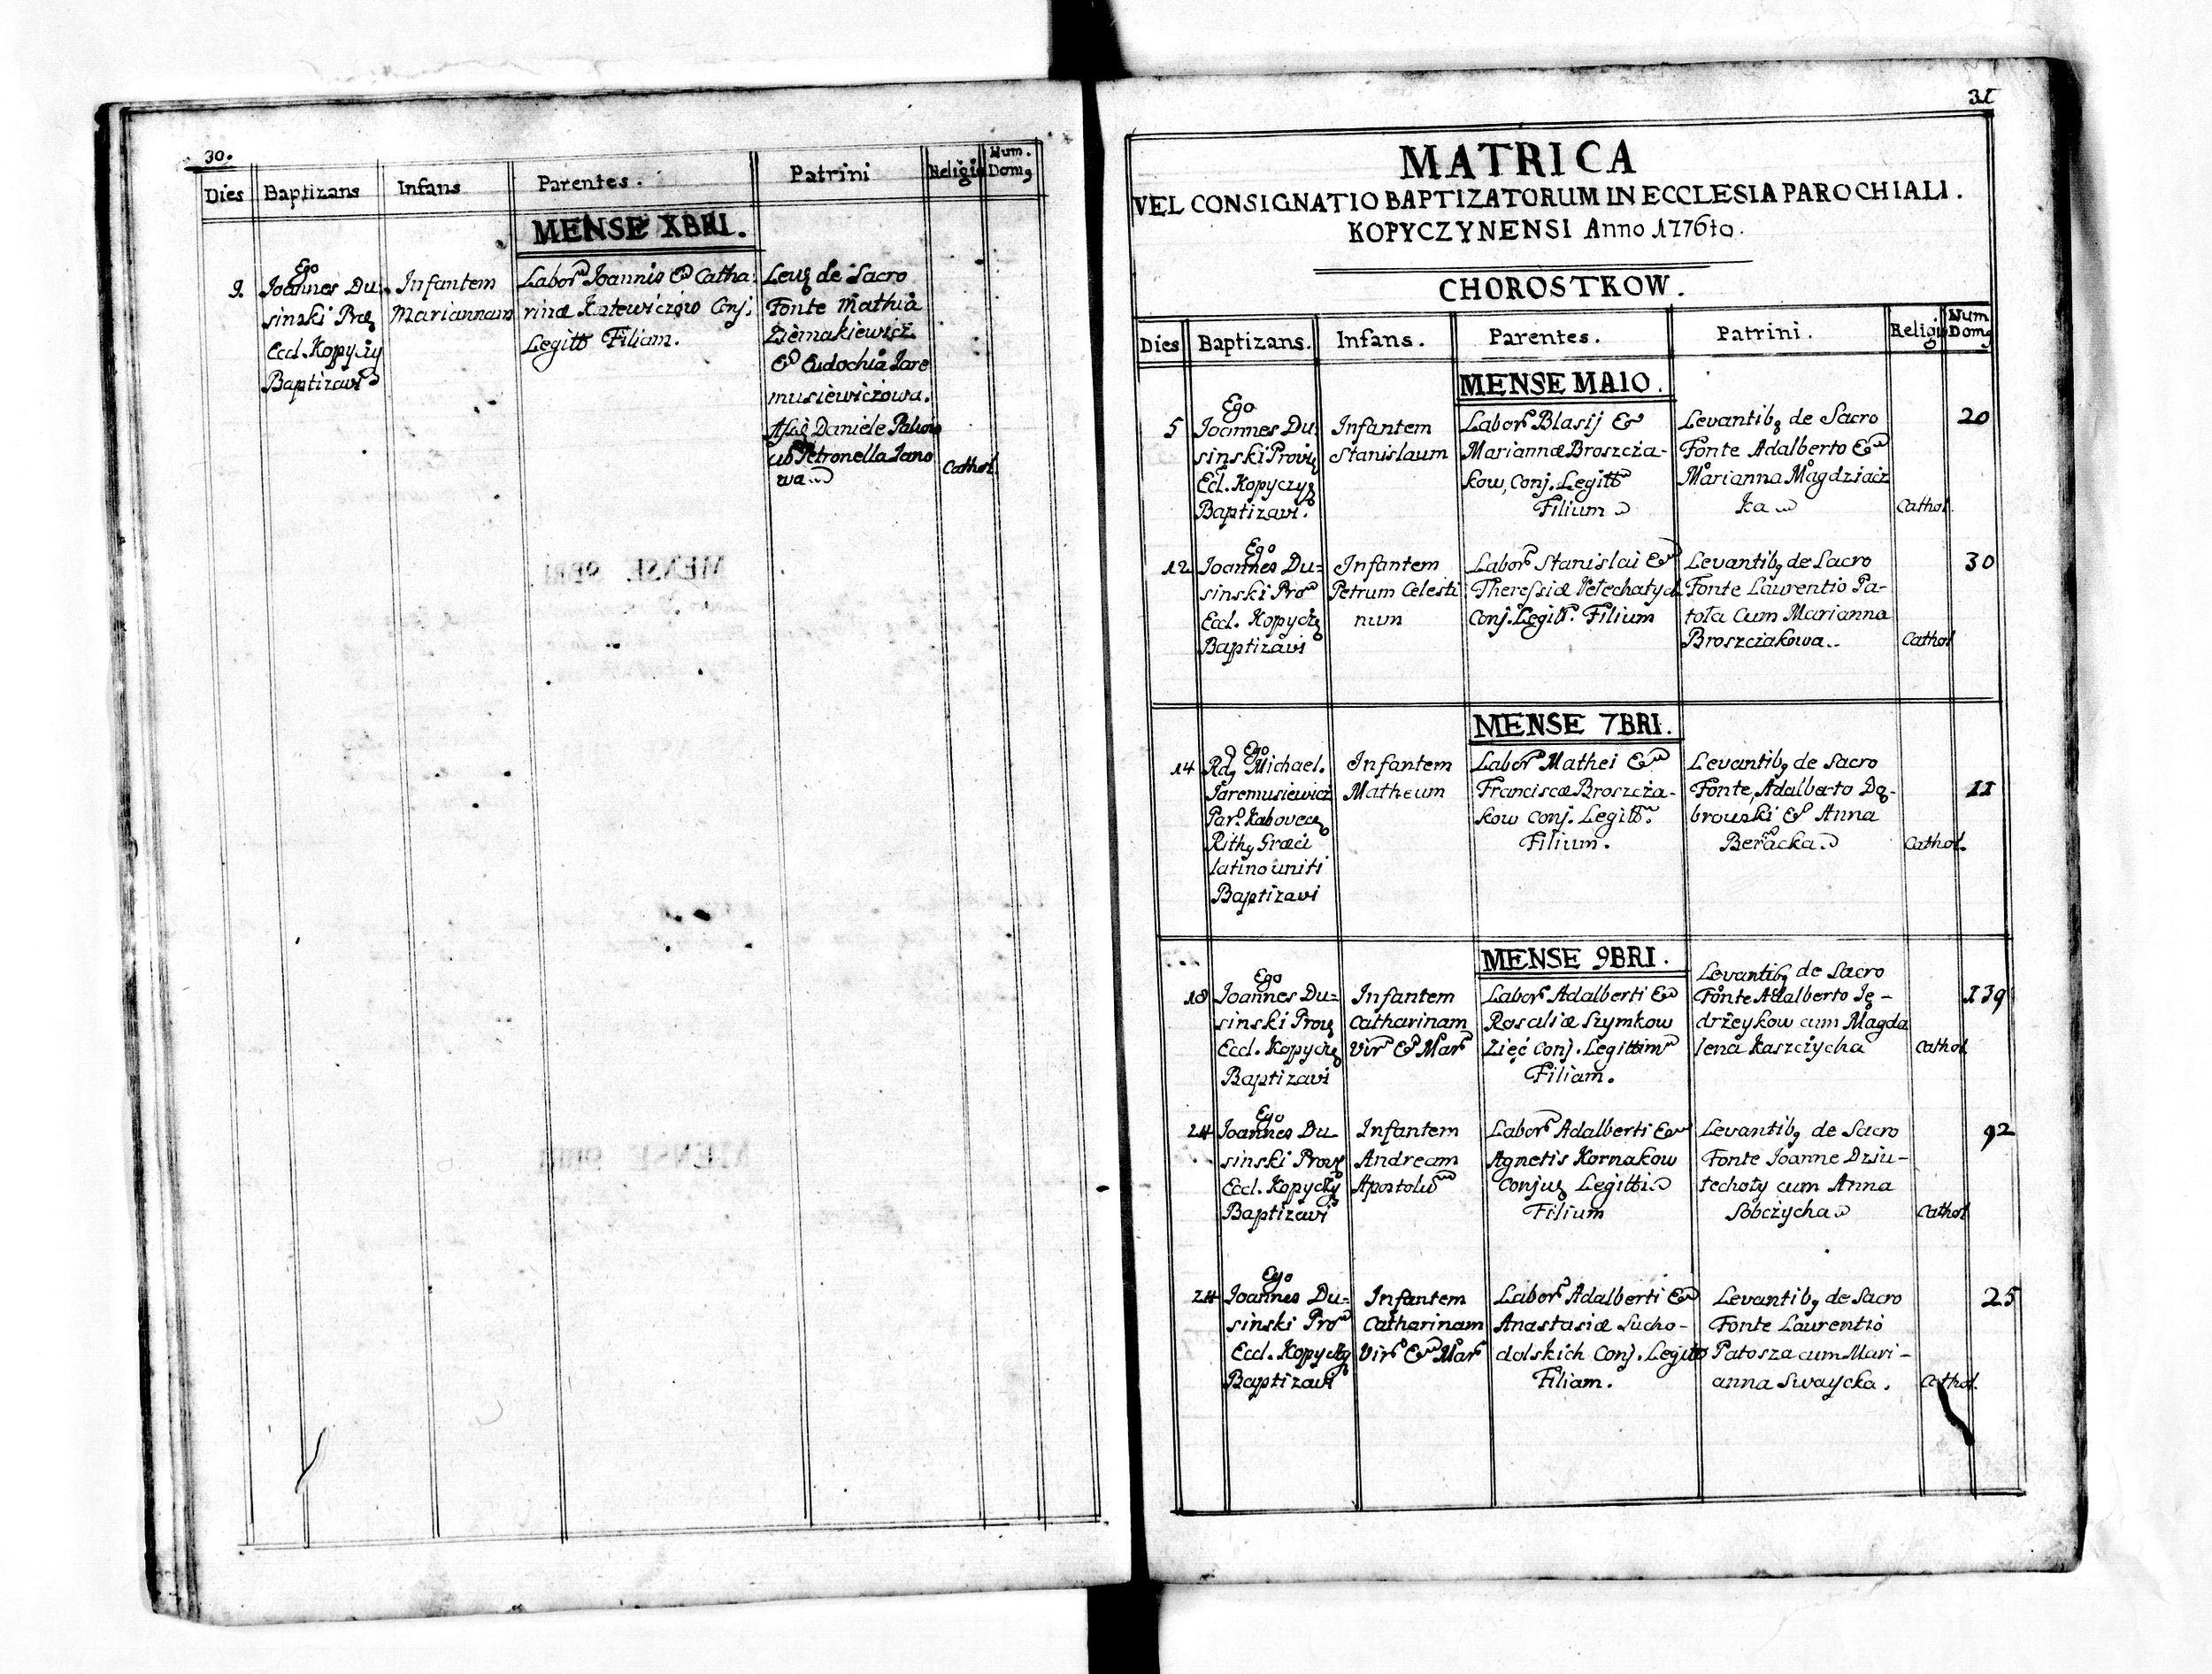 30.
Dies Baptizans Infans Parentes. Patrini Religio Num. Domq
MENSE XBRI.
9.
Ego
Joannes Du
sinski Prọ
Eccl. Kopyczy
Baptizavi
Infantem
Mariannam
Labor Joannis & Catha
rinæ Conj.
Legitt Filiam.
Leuq de Sacro
Fonte Mathia
Ziemakiewicz
& Eudochia Jare
musiewiczowa.
Daniele
Petronella Jano
wa
Cathol
31
MATRICA
VEL CONSIGNATIO BAPTIZATORUM IN ECCLESIA PAROCHIALI.
KOPYCZYNENSI Anno 1776to.
CHOROSTKOW.
Dies Baptizans. Infans. Parentes. Patrini. Religio Num Domq
MENSE MAIO.
5
Ego
Joannes Du
sinski Proviq
Ecl. Kopyczyq
Baptizavi.
Infantem
Stanislaum
Labor Blasij &
Mariannæ Broszcza-
kow, Conj. Legitt
Filium
Levantibq de Sacro
Fonte Adalberto &
Marianna Magdziacz
ka
Cathol.
20
12
Ego
Joannes Du=
sinski Pro
Eccl. Kopyczq
Baptizavi
Infantem
Petrum Celesti
num
Labor Stanislai &
Theressiæ Petechatych
Conj. Legitt. Filium
Levantibq de Sacro
Fonte Laurentio Pa-
tola Cum Marianna
Broszczakowa..
Cathol
30
MENSE 7BRI.
14
Ego
Rdq Michael.
Jaremusiewicz
Par. Kabovecq
Rithq Græci
latino uniti
Baptizavi
Infantem
Matheum
Labor Mathei &
Franciscæ Broszcza-
kow Conj. Legitt.
Filium.
Levantibq de Sacro
Fonte, Adalberto Dą-
browski & Anna
Beracka.
Cathol.
11
MENSE 9BRI.
18
Ego
Joannes Du=
sinski Provq
Eccl. Kopyczq
Baptizavi
Infantem
Catharinam
Vir & Mar
Labor Adalberti &
Rosaliæ Szymkow
Zięć Conj. Legittim
Filiam.
Levantibq de Sacro
Fonte Adalberto Ję-
drzeykow cum Magda
lena Kaszczycha
Cathol
139
24
Ego
Joannes Du
sinski Provq
Eccl. Kopyczy
Baptizavi
Infantem
Andream
Apostolu
Labor Adalberti &
Agnetis Kornakow
Conjuq Legitti
Filium
Levantibq de Sacro
Fonte Joanne Dziu-
techoty cum Anna
Sobczycha
Cathol
92
24
Ego
Joannes Du=
sinski Pro
Eccl. Kopyczq
Baptizavi
Infantem
Catharinam
Vir & Mar
Labor Adalberti &
Anastasiæ Sucho-
dolskich Conj. Legitt
Filiam.
Levantibq de Sacro
Fonte Laurentio
Patosza cum Mari-
anna Swaycka.
Cathol.
25